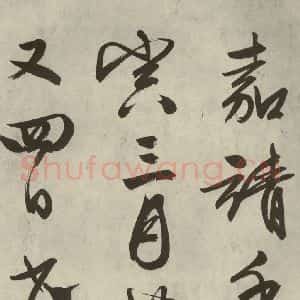 嘉靖
寅三月
又四日
Shufawang.cn